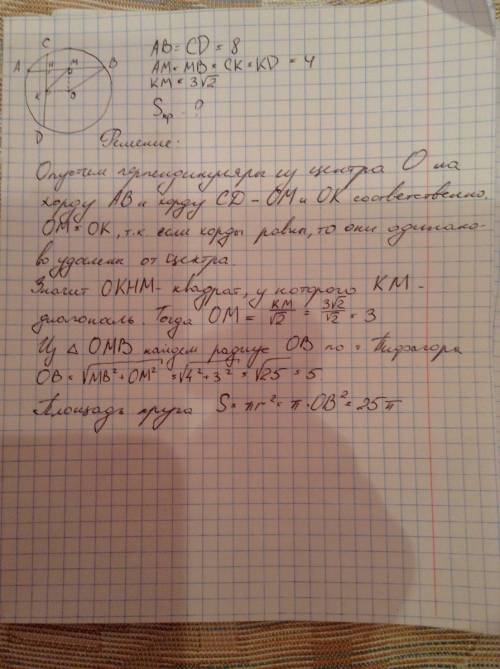 C
A
H
M
B
K
O
D
AB = CD = 8
AM = MB = CK = KD = 4
KM = 3√2
Sкр - ?
Решение:
Опустим перпендикуляры из центра O на
хорду AB и хорду CD - OM и OK соответственно.
OM = OK, т.к если хорды равны, то они одинако-
во удалены от центра.
Значит OKHM - квадрат, у которого KM -
диагональ. Тогда OM = KM/√2 = 3√2/√2 = 3
Из △ OMB найдем радиус OB по т Пифагора
OB = √MB²+OM² = √4²+3² = √25 = 5
Площадь круга S = πr² = π·OB² = 25π